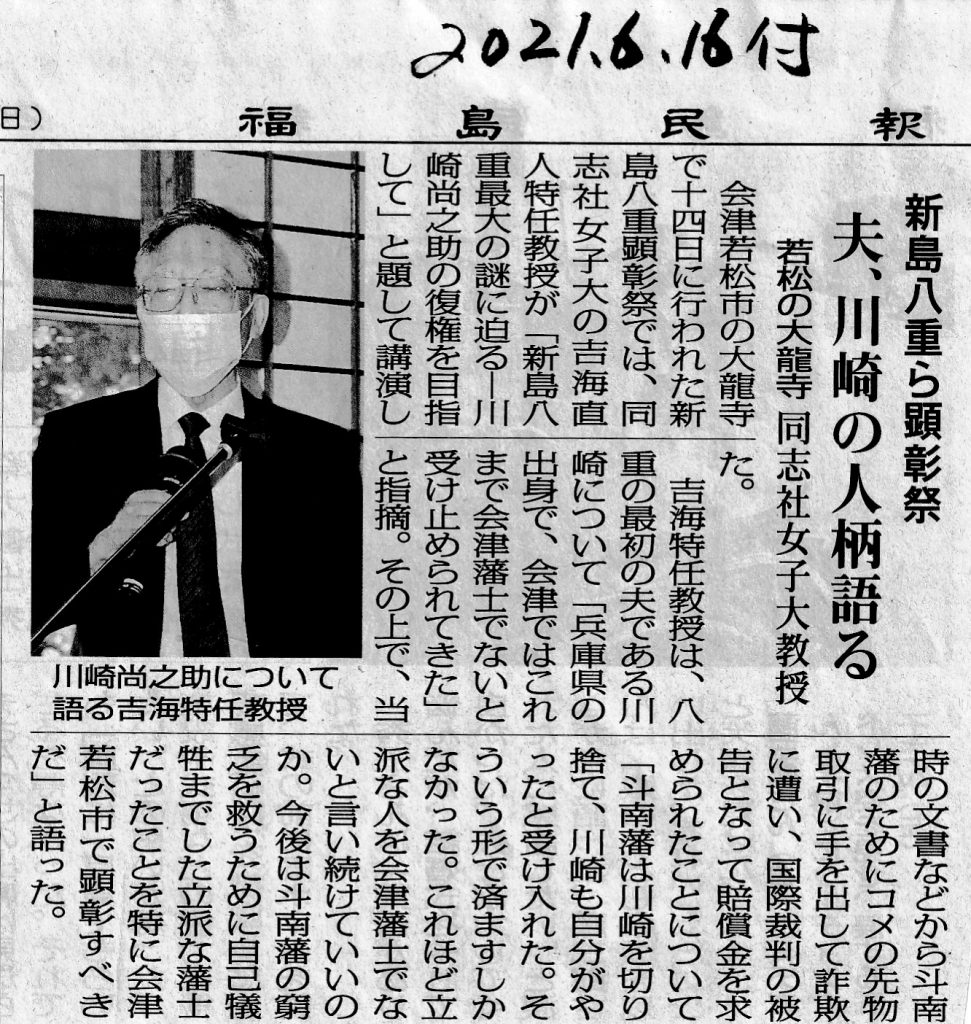 2021.6.16付
日）
福島民報
新島八重ら顕彰祭
夫、川崎の人柄語る
若松の大龍寺 同志社女子大教授
会津若松市の大龍寺
で十四日に行われた新
島八重顕彰祭では、同
志社女子大の吉海直
人特任教授が「新島八
重最大の謎に迫る―川
崎尚之助の復権を目指
して」と題して講演し
た。
吉海特任教授は、八
重の最初の夫である川
崎について「兵庫県の
出身で、会津ではこれ
まで会津藩士でないと
受け止められてきた」
と指摘。その上で、当
時の文書などから斗南
藩のためにコメの先物
取引に手を出して詐欺
に遭い、国際裁判の被
告となって賠償金を求
められたことについて
「斗南藩は川崎を切り
捨て、川崎も自分がや
ったと受け入れた。そ
ういう形で済ますしか
なかった。これほど立
派な人を会津藩士でな
いと言い続けていいの
か。今後は斗南藩の窮
乏を救うために自己犠
牲までした立派な藩士
だったことを特に会津
若松市で顕彰すべき
だ」と語った。
川崎尚之助について
語る吉海特任教授